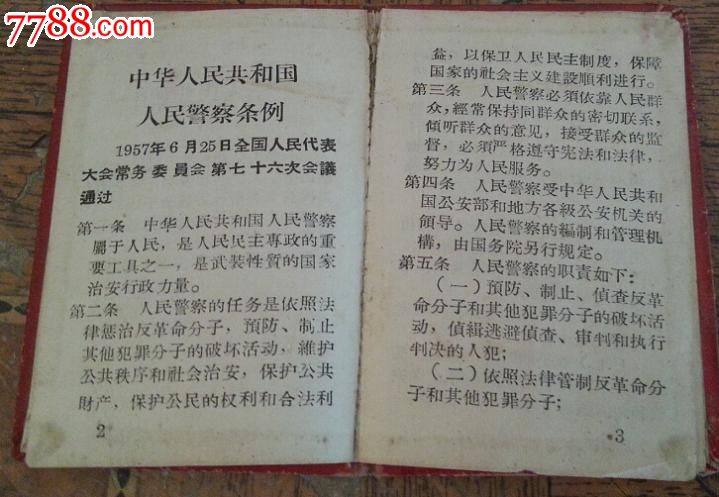 7788.com
中华人民共和国
人民警察条例
1957年6月25日全国人民代表
大会常务委員会第七十六次会議
通过
第一条 中华人民共和国人民警察
屬于人民，是人民民主專政的重
要工具之一，是武装性質的国家
治安行政力量。
第二条 人民警察的任务是依照法
律惩治反革命分子，預防、制止
其他犯罪分子的破坏活动，維护
公共秩序和社会治安，保护公共
財产，保护公民的权利和合法利
2
益，以保卫人民民主制度，保障
国家的社会主义建設順利进行。
第三条 人民警察必須依靠人民群
众，經常保持同群众的密切联系，
傾听群众的意見，接受群众的监
督，必須严格遵守宪法和法律，
努力为人民服务。
第四条 人民警察受中华人民共和
国公安部和地方各級公安机关的
領导。人民警察的編制和管理机
構，由国务院另行規定。
第五条 人民警察的职責如下：
（一）預防、制止、偵查反革
命分子和其他犯罪分子的破坏活
动，偵緝逃避偵查、审判和执行
判决的人犯；
（二）依照法律管制反革命分
子和其他犯罪分子；
3